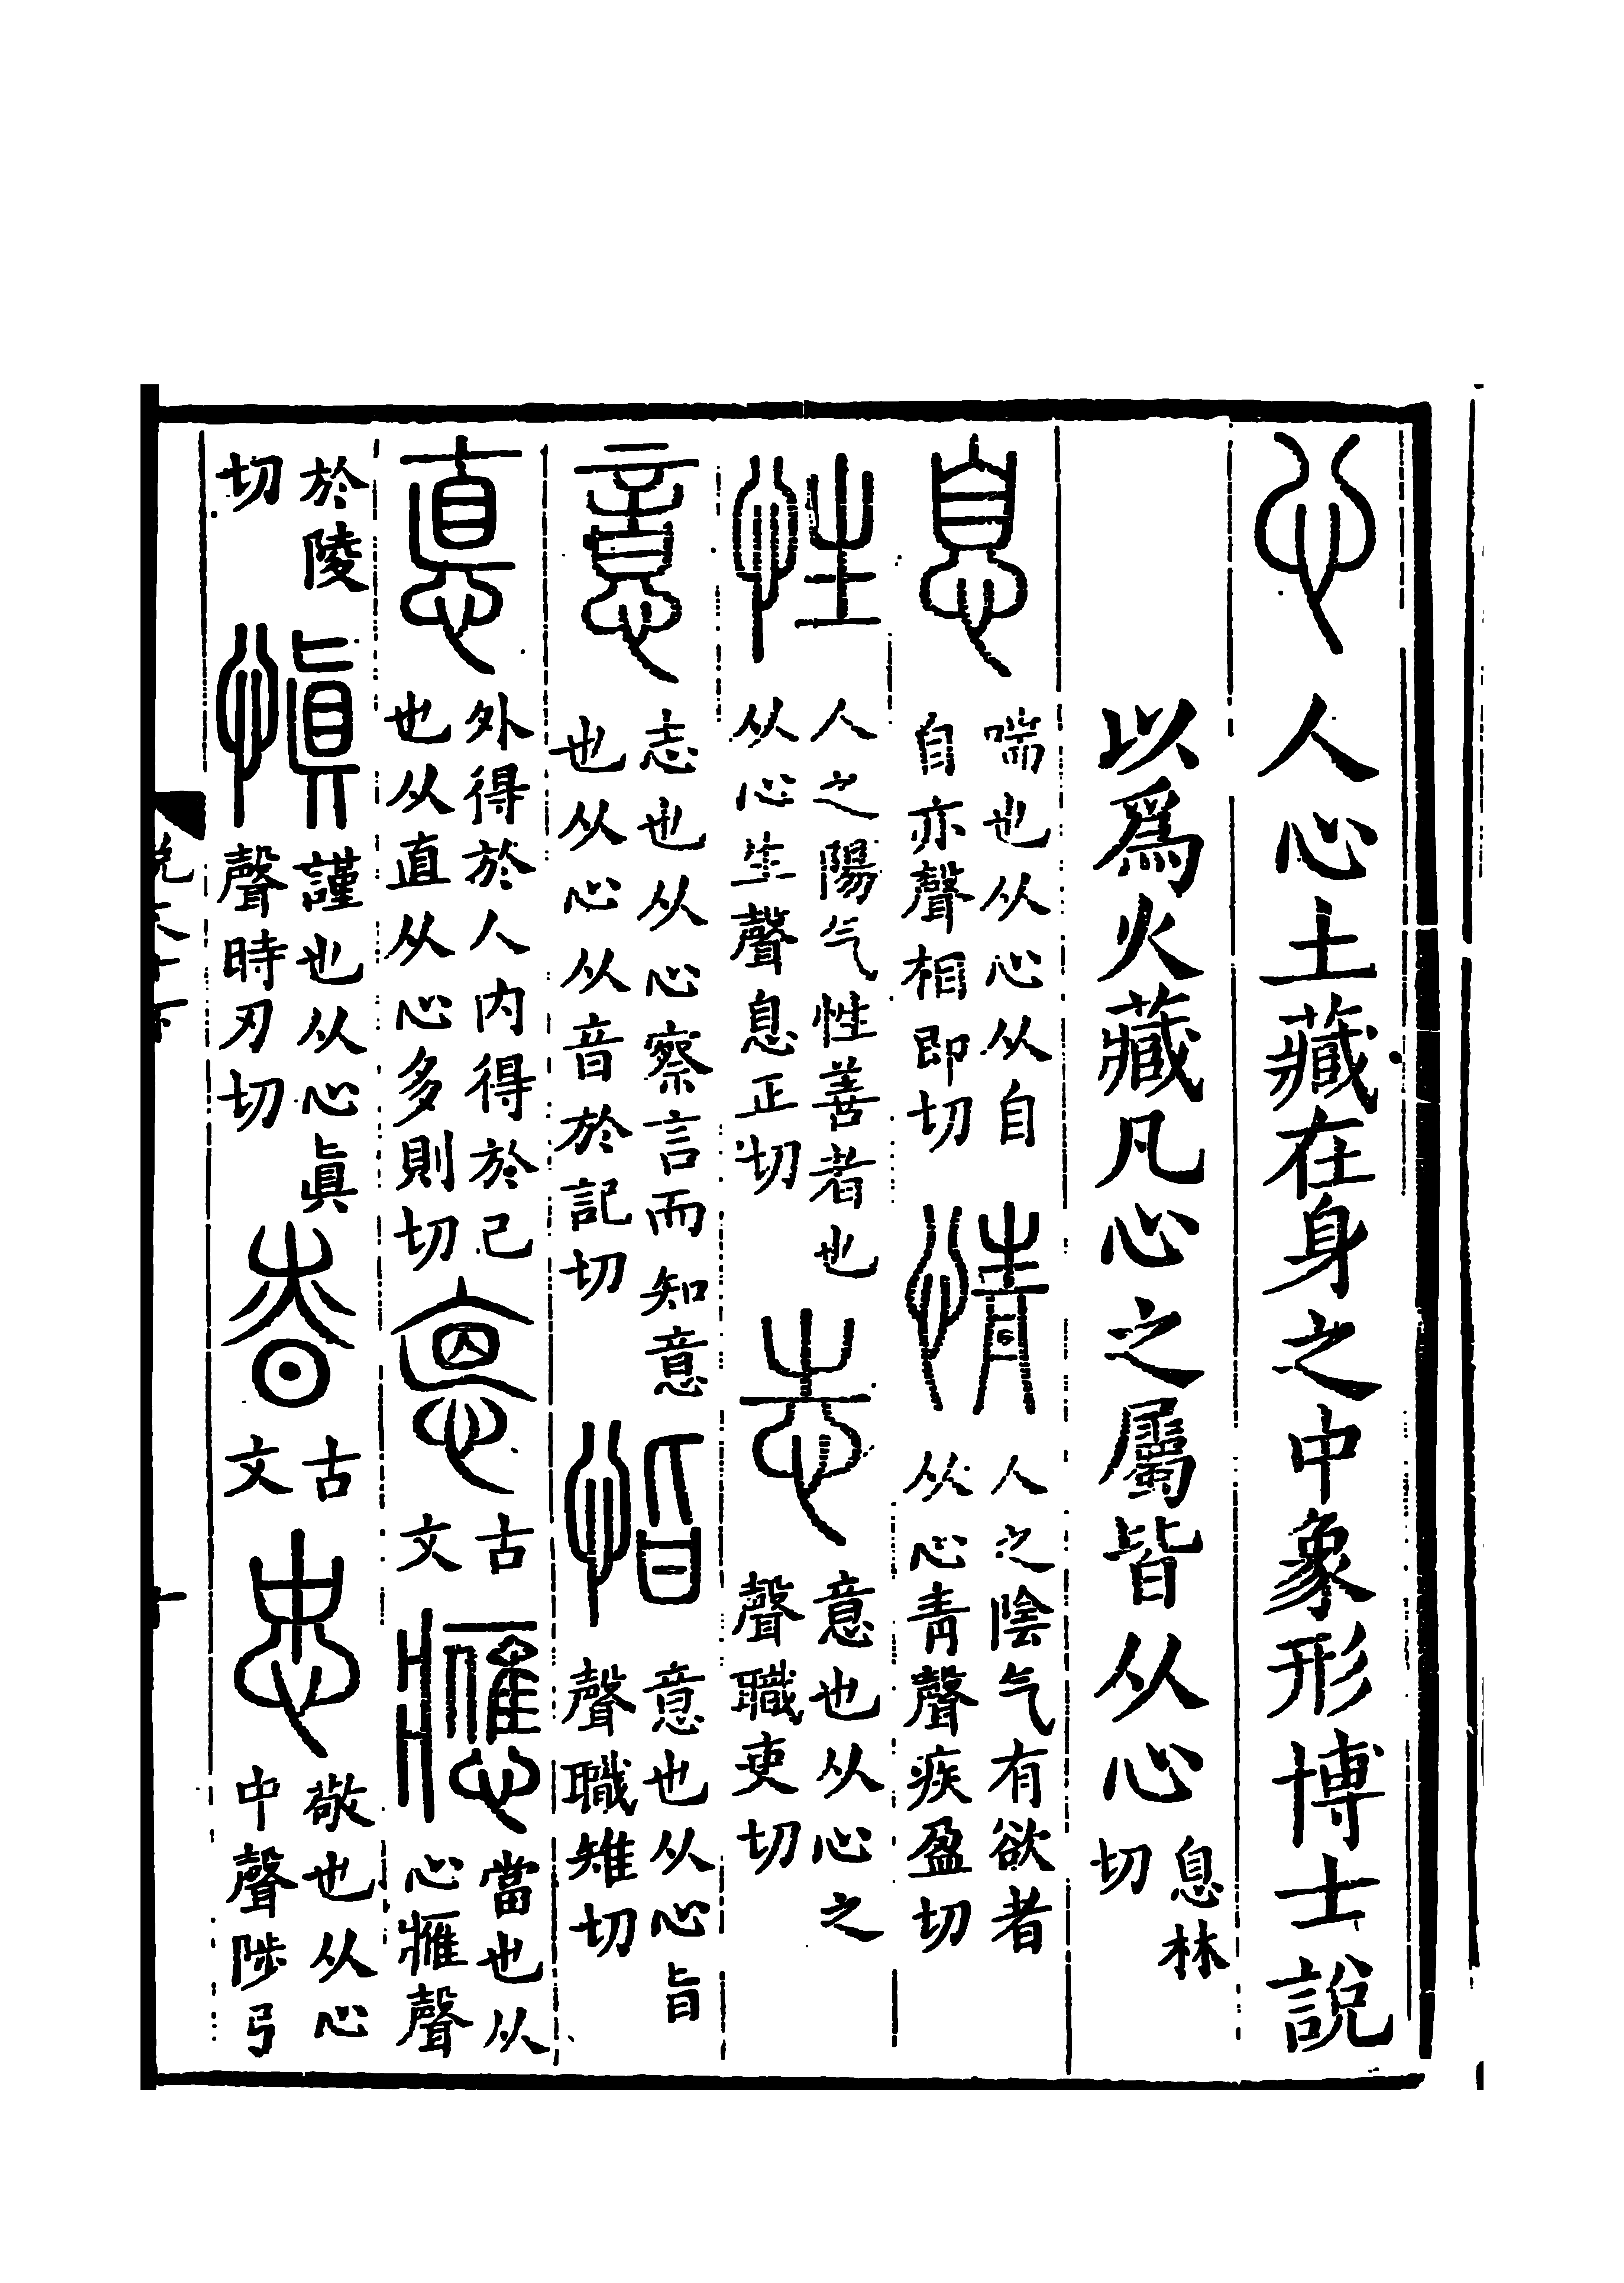 心 人心土藏在身之中象形博士說
以爲火藏凡心之屬皆从心 息林切
息 喘也从心从自自亦聲相即切 情 人之陰气有欲者从心青聲疾盈切
性 人之陽气性善者也从心生聲息正切 志 意也从心之聲職吏切
意 志也从心察言而知意也从心从音於記切 恉 意也从心旨聲職雉切
悳 外得於人内得於己也从直从心多則切 𢛳 古文 應 當也从心䧹聲
於陵切 愼 謹也从心眞聲時刃切 昚 古文 忠 敬也从心中聲陟弓
說文十下
十